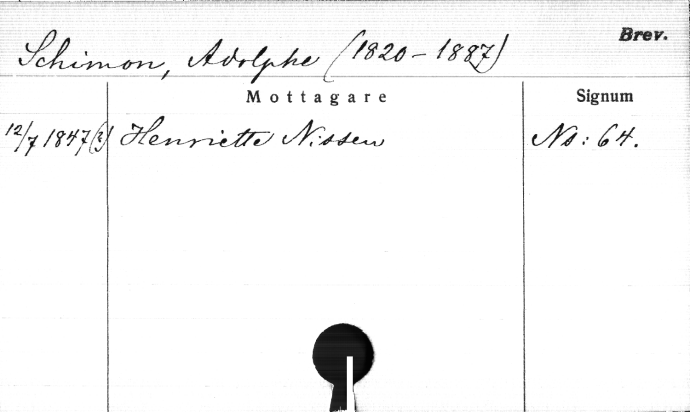 Brev.
Schimon, Adolphe (1820-1887)
Mottagare Signum
12/7 1847(?) Henriette Nissen Ns: 64.